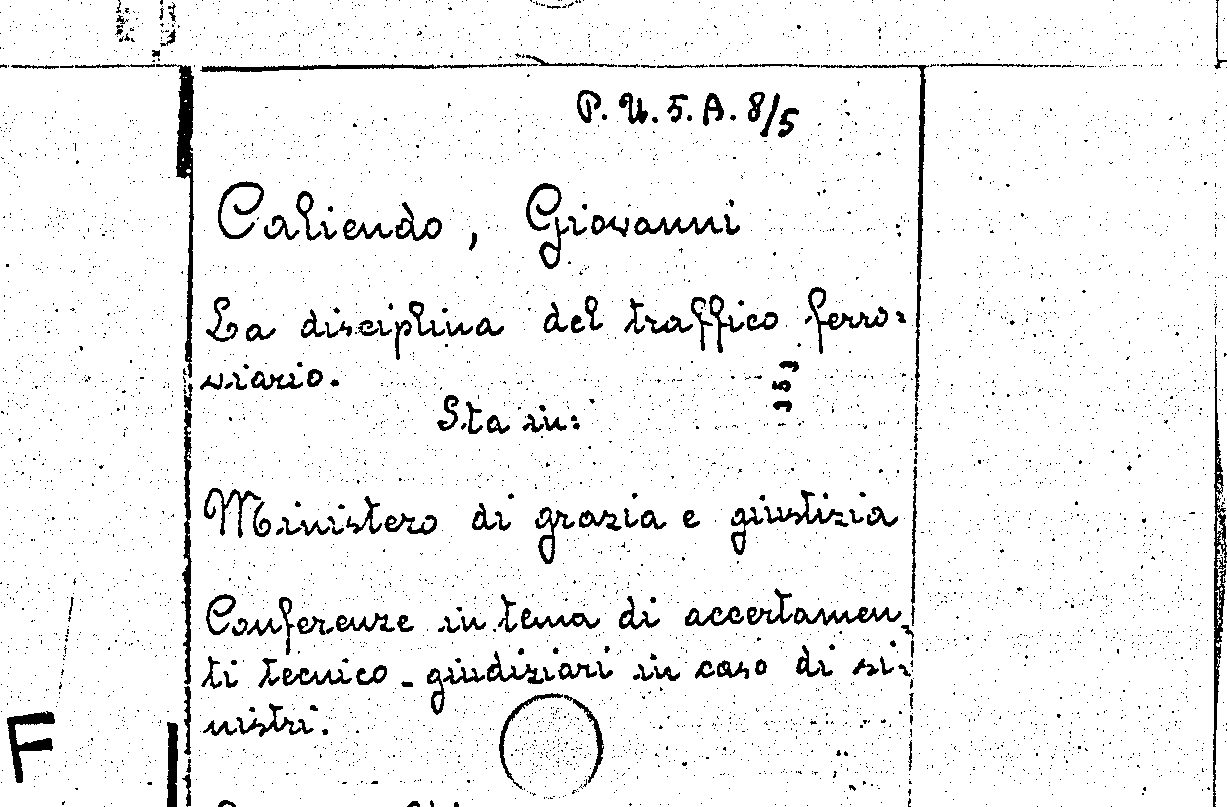 P. U. 5. A. 8/5
Caliendo, Giovanni
La disciplina del traffico ferro=
viario.
Sta in:
Ministero di grazia e giustizia
Conferenze in tema di accertamen_
ti tecnico - giudiziari in caso di si=
nistri.
F